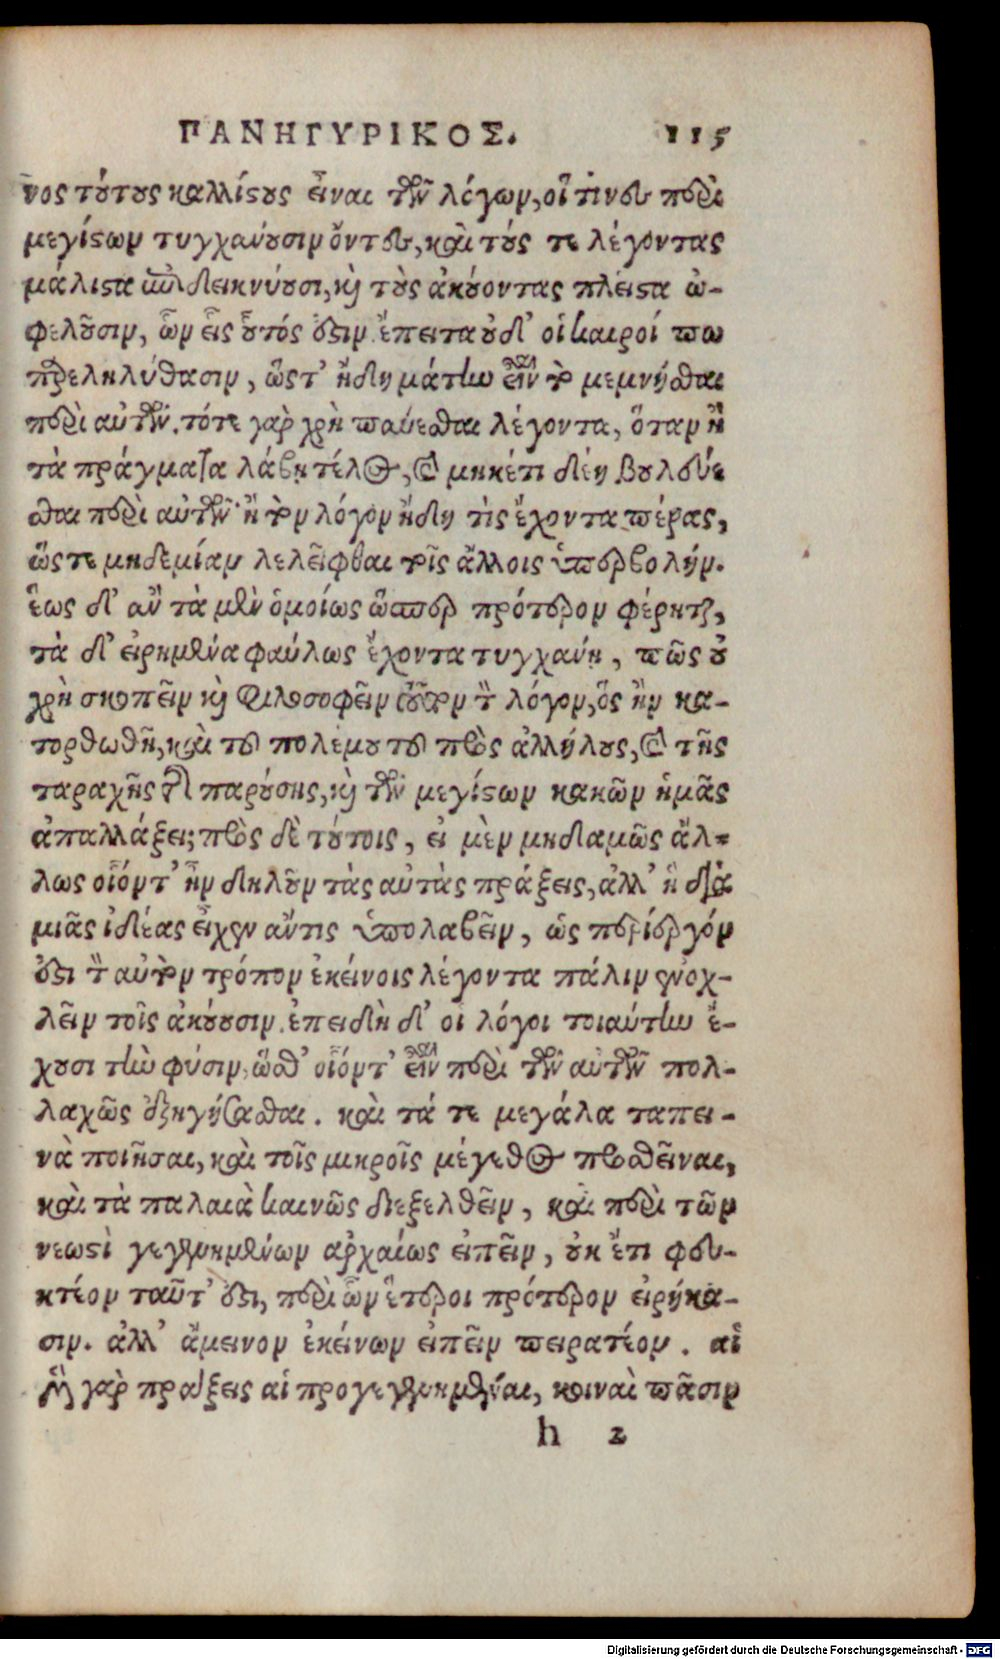 ΠΑΝΗΓΥΡΙΚΟΣ. 115
νος τούτους καλλίστους εἶναι τῶν λόγων, οἵ τινες περὶ
μεγίστων τυγχάνουσιν ὄντες, καὶ τούς τε λέγοντας
μάλιστα ἐπιδεικνύουσι, καὶ τοὺς ἀκούοντας πλεῖστα ὠ-
φελοῦσιν, ὧν εἷς οὗτός ἐστιν. ἔπειτα οὐδ' οἱ καιροί πω
παρεληλύθασιν, ὥστ' ἤδη μάτην εἶναι τὸ μεμνῆσθαι
περὶ αὐτῶν. τότε γὰρ χρὴ παύεσθαι λέγοντα, ὅταν ἢ
τὰ πράγματα λάβῃ τέλος, καὶ μηκέτι δέῃ βουλεύε
σθαι περὶ αὐτῶν· ἢ τὸν λόγον ἤδη τὶς ἔχοντα πέρας,
ὥστε μηδεμίαν λελεῖφθαι τοῖς ἄλλοις ὑπερβολήν.
ἕως δ' ἂν τὰ μὲν ὁμοίως ὥσπερ πρότερον φέρηται,
τὰ δ' εἰρημένα φαύλως ἔχοντα τυγχάνῃ, πῶς οὐ
χρὴ σκοπεῖν καὶ φιλοσοφεῖν τοῦτον τὸν λόγον, ὃς ἢν κα-
τορθωθῇ, καὶ τοῦ πολέμου τοῦ πρὸς ἀλλήλους, καὶ τῆς
ταραχῆς τῆς παρούσης, καὶ τῶν μεγίστων κακῶν ἡμᾶς
ἀπαλλάξει; πρὸς δὲ τούτοις, εἰ μὲν μηδαμῶς ἄλ-
λως οἷόντ' ἦν δηλοῦν τὰς αὐτὰς πράξεις, ἀλλ' ἢ διὰ
μιᾶς ἰδέας εἶχεν ἄν τις ὑπολαβεῖν, ὡς περίεργόν
ἐστι τὸν αὐτὸν τρόπον ἐκείνοις λέγοντα πάλιν ἐνοχ-
λεῖν τοῖς ἀκούουσιν. ἐπειδὴ δ' οἱ λόγοι τοιαύτην ἔ-
χουσι τὴν φύσιν, ὥσθ' οἷόντ' εἶναι περὶ τῶν αὐτῶν πολ-
λαχῶς ἐξηγήσασθαι. καὶ τά τε μεγάλα ταπει-
νὰ ποιῆσαι, καὶ τοῖς μικροῖς μέγεθος προσθεῖναι,
καὶ τὰ παλαιὰ καινῶς διεξελθεῖν, καὶ περὶ τῶν
νεωστὶ γεγενημένων ἀρχαίως εἰπεῖν, οὐκ ἔτι φευ-
κτέον ταῦτ' ἐστι, περὶ ὧν ἕτεροι πρότερον εἰρήκα-
σιν. ἀλλ' ἄμεινον ἐκείνων εἰπεῖν πειρατέον. αἱ
μὲν γὰρ πράξεις αἱ προγεγενημέναι, κοιναὶ πᾶσιν
h 2
Digitalisierung gefördert durch die Deutsche Forschungsgemeinschaft - DFG